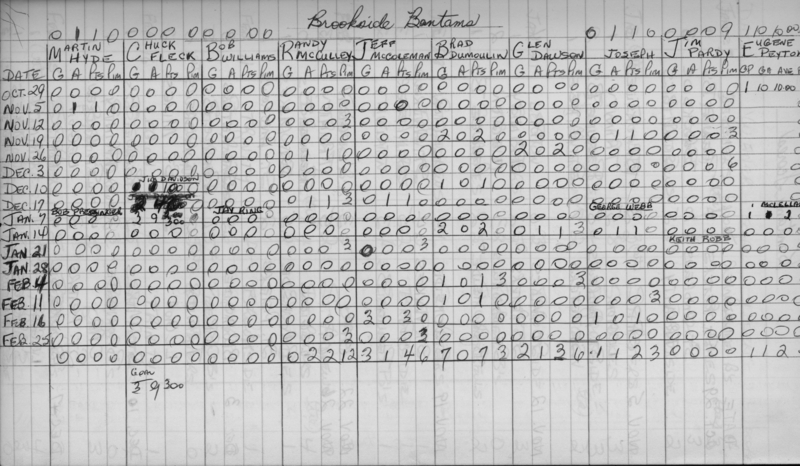 Brookside Bantams
0 1 1 0 0 0 0 0 0 0 0 1 1 0 0 0 0 9 1 10 10.00
MARTIN HYDE CHUCK FLECK BOB WILLIAMS RANDY MCCULLEY JEFF MCCOLEMAN BRAD DUMOULIN GLEN DAWSON JOSEPH JIM PARDY EUGENE PEYTON
DATE G A Pts Pim G A Pts Pim G A Pts Pim G A Pts Pim G A Pts Pim G A Pts Pim G A Pts Pim G A Pts Pim G A Pts Pim GP GA AVE
OCT. 29 0 0 0 0 0 0 0 0 0 0 0 0 0 0 0 0 0 0 0 0 0 0 0 0 0 0 0 0 0 0 0 0 0 0 0 0 1 10 10.00
NOV. 5 0 1 1 0 0 0 0 0 0 0 0 0 0 0 0 0 0 0 0 0 0 0 0 0 0 0 0 0 0 0 0 0 0 0 0 0
NOV. 12 0 0 0 0 0 0 0 0 0 0 0 0 0 0 0 3 0 0 0 0 0 0 0 0 0 0 0 0 0 0 0 0 0 0 0 0
NOV. 19 0 0 0 0 0 0 0 0 0 0 0 0 0 0 0 0 0 0 0 0 2 0 2 0 0 0 0 0 0 1 1 0 0 0 0 3
NOV. 26 0 0 0 0 0 0 0 0 0 0 0 0 0 1 1 0 0 0 0 0 0 0 0 0 2 0 2 0 0 0 0 0 0 0 0 0
DEC. 3 0 0 0 0 0 0 0 0 0 0 0 0 0 0 0 0 0 0 0 0 0 0 0 0 0 0 0 0 0 0 0 0 0 0 0 6
JIM DAVIDSON
DEC. 10 0 0 0 0 0 0 0 0 0 0 0 0 1 0 1 0 0 0 0 0 0 0 0 0 0 0 0 0
DEC. 17 0 0 0 0 0 0 0 0 0 1 1 3 0 1 1 0 0 0 0 0 0 0 0 0 0 0 0 0 0 0 0 0
JAN KING GEORGE WEBB
JAN. 7 0 0 0 0 9 300 0 0 0 0 0 0 0 0 0 0 0 0 0 0 0 0 0 0 0 0 0 0 0 0 0 0 0 0
JAN. 14 0 0 0 0 300 0 0 0 0 0 0 0 0 0 0 0 0 2 0 2 0 0 1 1 3 0 1 1 0 0 0 0 0
KEITH ROBB
JAN 21 0 0 0 0 0 0 0 0 0 0 0 0 0 0 0 3 0 0 0 3 0 0 0 0 0 0 0 0 0 0 0 0 0 0 0 0
JAN 28 0 0 0 0 0 0 0 0 0 0 0 0 0 0 0 0 0 0 0 0 0 0 0 0 0 0 0 0 0 0 0 0 0 0 0 0
FEB 4 0 0 0 0 0 0 0 0 0 0 0 0 0 0 0 0 0 0 0 0 1 0 1 3 0 0 0 3 0 0 0 0 0 0 0 0
FEB 11 0 0 0 0 0 0 0 0 0 0 0 0 0 0 0 0 0 0 0 0 1 0 1 0 0 0 0 0 0 0 0 3 0 0 0 0
FEB. 16 0 0 0 0 0 0 0 0 0 0 0 0 0 0 0 0 3 0 3 0 0 0 0 0 0 0 0 0 1 0 1 0 0 0 0 0
FEB. 25 0 0 0 0 0 0 0 0 0 0 0 0 0 0 0 3 0 0 0 3 0 0 0 0 0 0 0 0 0 0 0 0 0 0 0 0
0 0 0 0 0 0 0 0 0 0 0 0 0 2 2 12 3 1 4 6 7 0 7 3 2 1 3 6 1 1 2 3 0 0 0 0 1 1 2
3 9 300